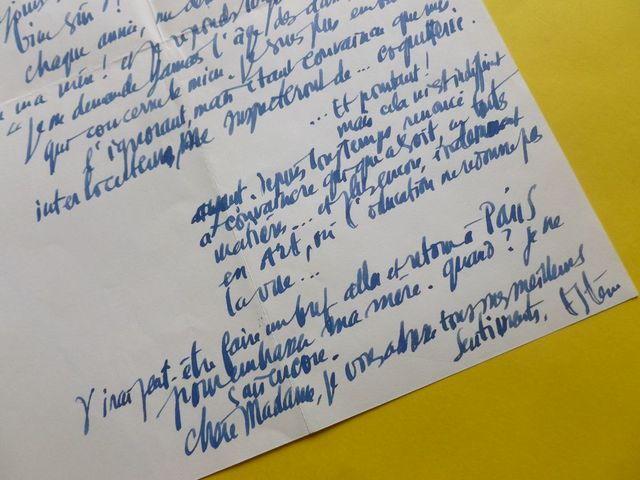 bien sûr ?
chaque année, me
à ma mère ! et je réponds
" Je ne demande jamais l'âge des
qui concerne le mien. Je suis plus
l'ignorant, mais étant convaincu que mes
interlocuteurs me suspecteront de... coquetterie.
... Et pourtant !
mais cela m'est indifférent
ayant depuis longtemps renoncé
à convaincre qui que ce soit, en toutes
matières... et plus encore, évidemment
en Art, où l'éducation ne redonne pas
la vue...
J'irai peut-être faire un bref aller et retour à Paris
pour embrasser ma mère. quand ? je ne
sais encore.
chère Madame, je vous adresse tous mes meilleurs
sentiments.